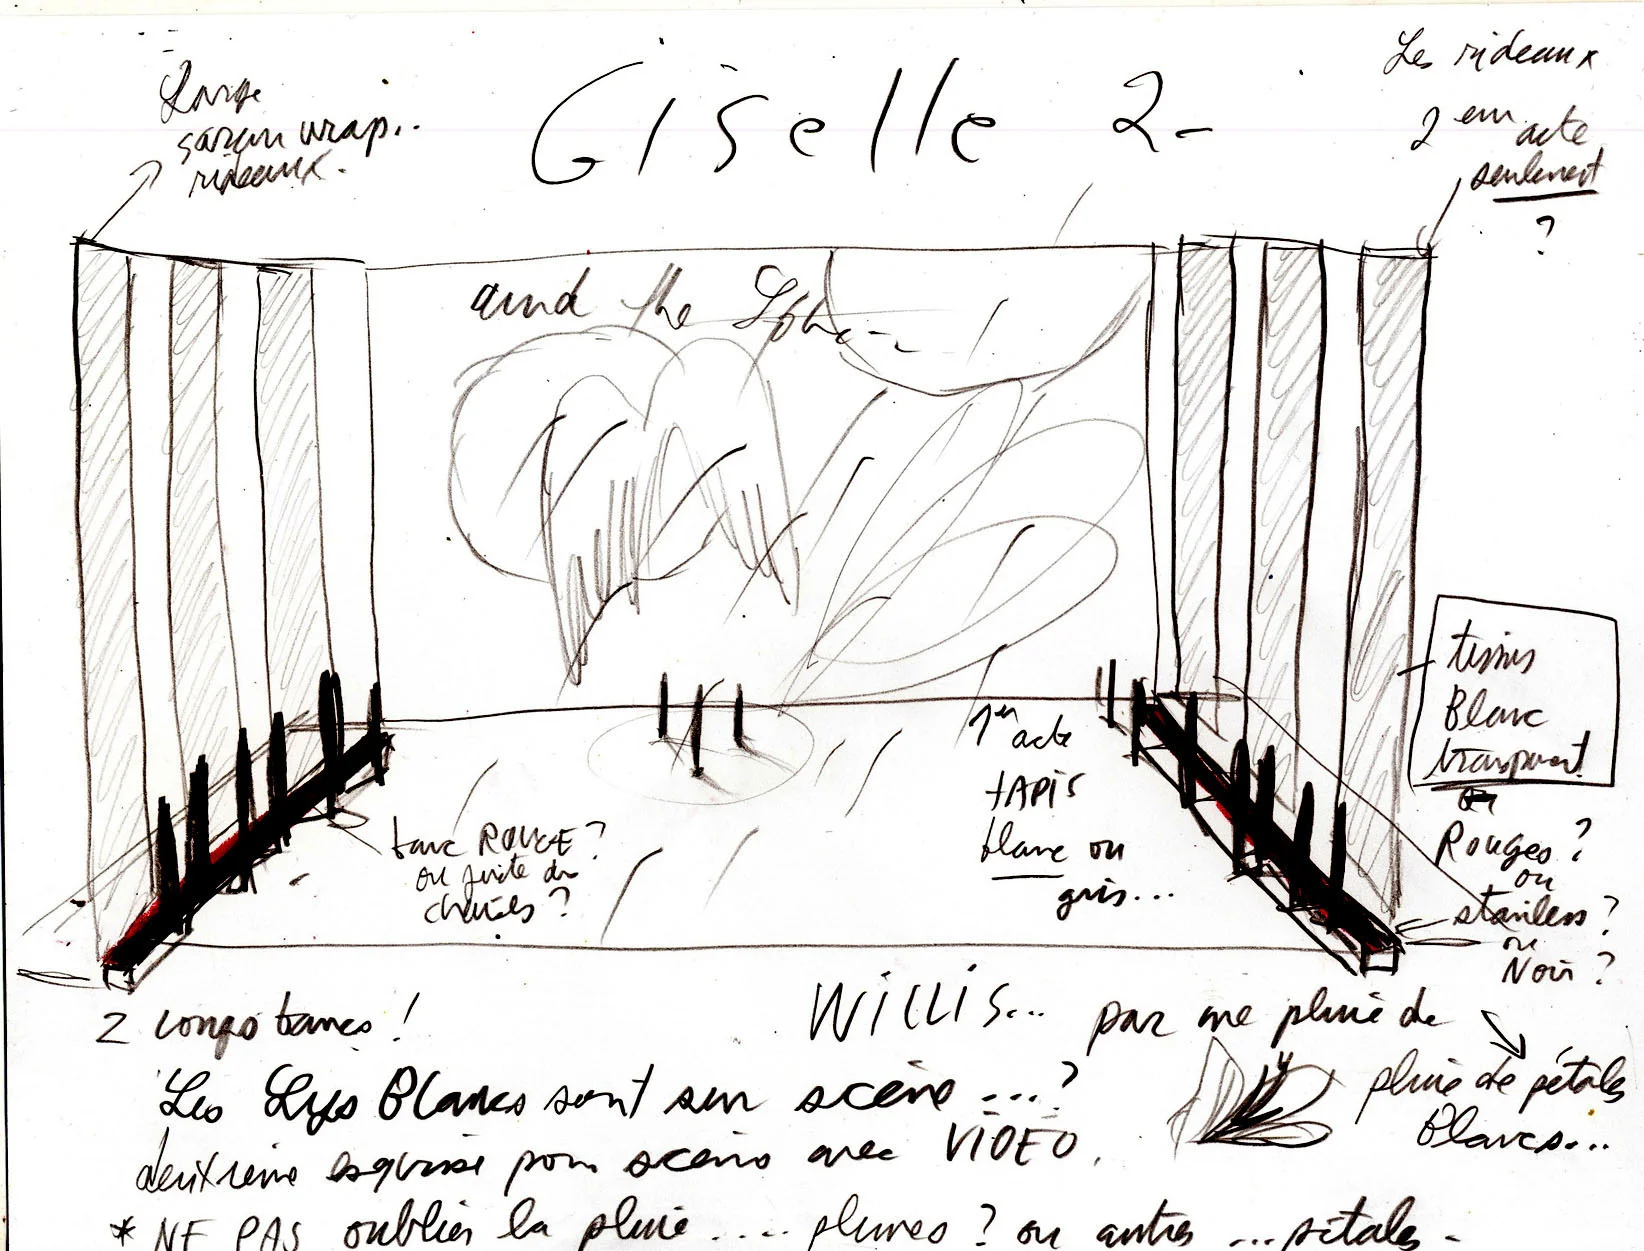 Giselle 2-
Large
saran wrap..
rideaux.
Les rideaux
2em acte
seulement
?
and the
tissus
Blanc
transparent
ou
Rouges?
ou
stainless?
ou
Noir?
1er acte
TAPIS
blanc ou
gris...
banc ROUGE?
ou juste des
chaises?
2 longs bancs!
WILLIS... par une pluie de
pluie de pétales
Blancs...
Les Lys Blancs sont sur scène ...?
deuxième esquisse pour scène avec VIDEO.
* NE PAS oublier la pluie .... plumes? ou autres ... pétales -